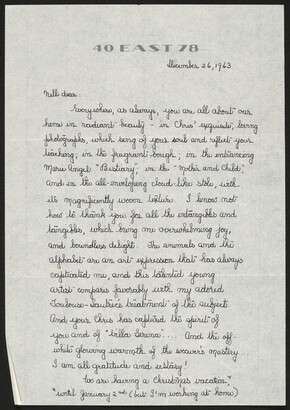 40 EAST 78
December 26, 1963.
Nell dear:
Everywhere, as always, you are all about our
home in radiant beauty - in Chris' exquisite, loving
photographs, which sing of your soul and reflect your
teaching; in the fragrant bough; in the entrancing
"Bestiary; in the "Mother and Child,"
and in the all-enveloping cloud-like stole with
its magnificently woven texture. I know not
how to thank you for all the intangibles and
tangibles, which bring me overwhelming joy,
and boundless delight. The animals and the
alphabet are an art expression that has always
captivated me, and this talented young
artist compares favorably with my adored
Toulouse-Lautrec's treatment of the subject.
And your Chris has captured the spirit of
you and of "Villa Serena".... And the off-
white glowing warmth of the weaver's mastery.
I am all gratitude and ecstasy!
We are having a Christmas vacation,
until January 2nd (but I'm working at home)